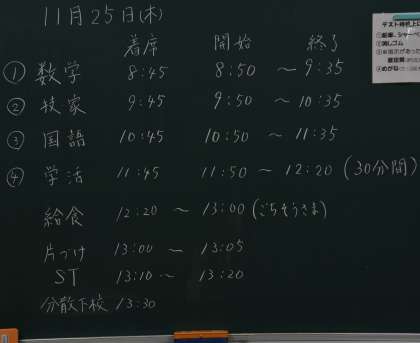 11月25日(木)
着席 開始 終了
① 数学 8:45 8:50 ～ 9:35
② 技家 9:45 9:50 ～ 10:35
③ 国語 10:45 10:50 ～ 11:35
④ 学活 11:45 11:50 ～ 12:20 (30分間)
給食 12:20 ～ 13:00 (ごちそうさま)
片づけ 13:00 ～ 13:05
ST 13:10 ～ 13:20
分散下校 13:30
②消しゴム